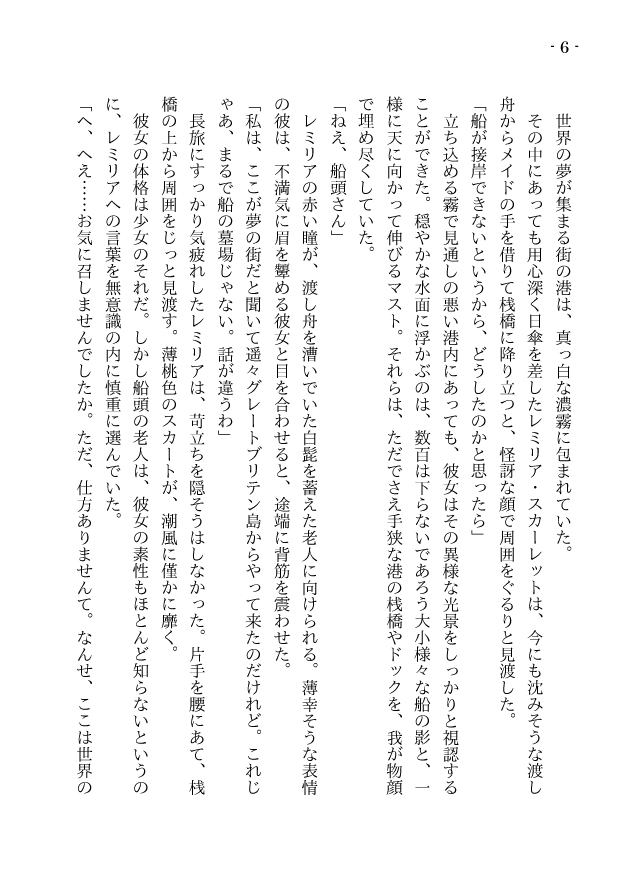 - 6 -
世界の夢が集まる街の港は、真っ白な濃霧に包まれていた。
その中にあっても用心深く日傘を差したレミリア・スカーレットは、今にも沈みそうな渡し
舟からメイドの手を借りて桟橋に降り立つと、怪訝な顔で周囲をぐるりと見渡した。
「船が接岸できないというから、どうしたのかと思ったら」
立ち込める霧で見通しの悪い港内にあっても、彼女はその異様な光景をしっかりと視認する
ことができた。穏やかな水面に浮かぶのは、数百は下らないであろう大小様々な船の影と、一
様に天に向かって伸びるマスト。それらは、ただでさえ手狭な港の桟橋やドックを、我が物顔
で埋め尽くしていた。
「ねえ、船頭さん」
レミリアの赤い瞳が、渡し舟を漕いでいた白髭を蓄えた老人に向けられる。薄幸そうな表情
の彼は、不満気に眉を顰める彼女と目を合わせると、途端に背筋を震わせた。
「私は、ここが夢の街だと聞いて遥々グレートブリテン島からやって来たのだけれど。これじ
ゃあ、まるで船の墓場じゃない。話が違うわ」
長旅にすっかり気疲れしたレミリアは、苛立ちを隠そうはしなかった。片手を腰にあて、桟
橋の上から周囲をじっと見渡す。薄桃色のスカートが、潮風に僅かに靡く。
彼女の体格は少女のそれだ。しかし船頭の老人は、彼女の素性もほとんど知らないというの
に、レミリアへの言葉を無意識の内に慎重に選んでいた。
「へ、へえ……お気に召しませんでしたか。ただ、仕方ありませんて。なんせ、ここは世界の